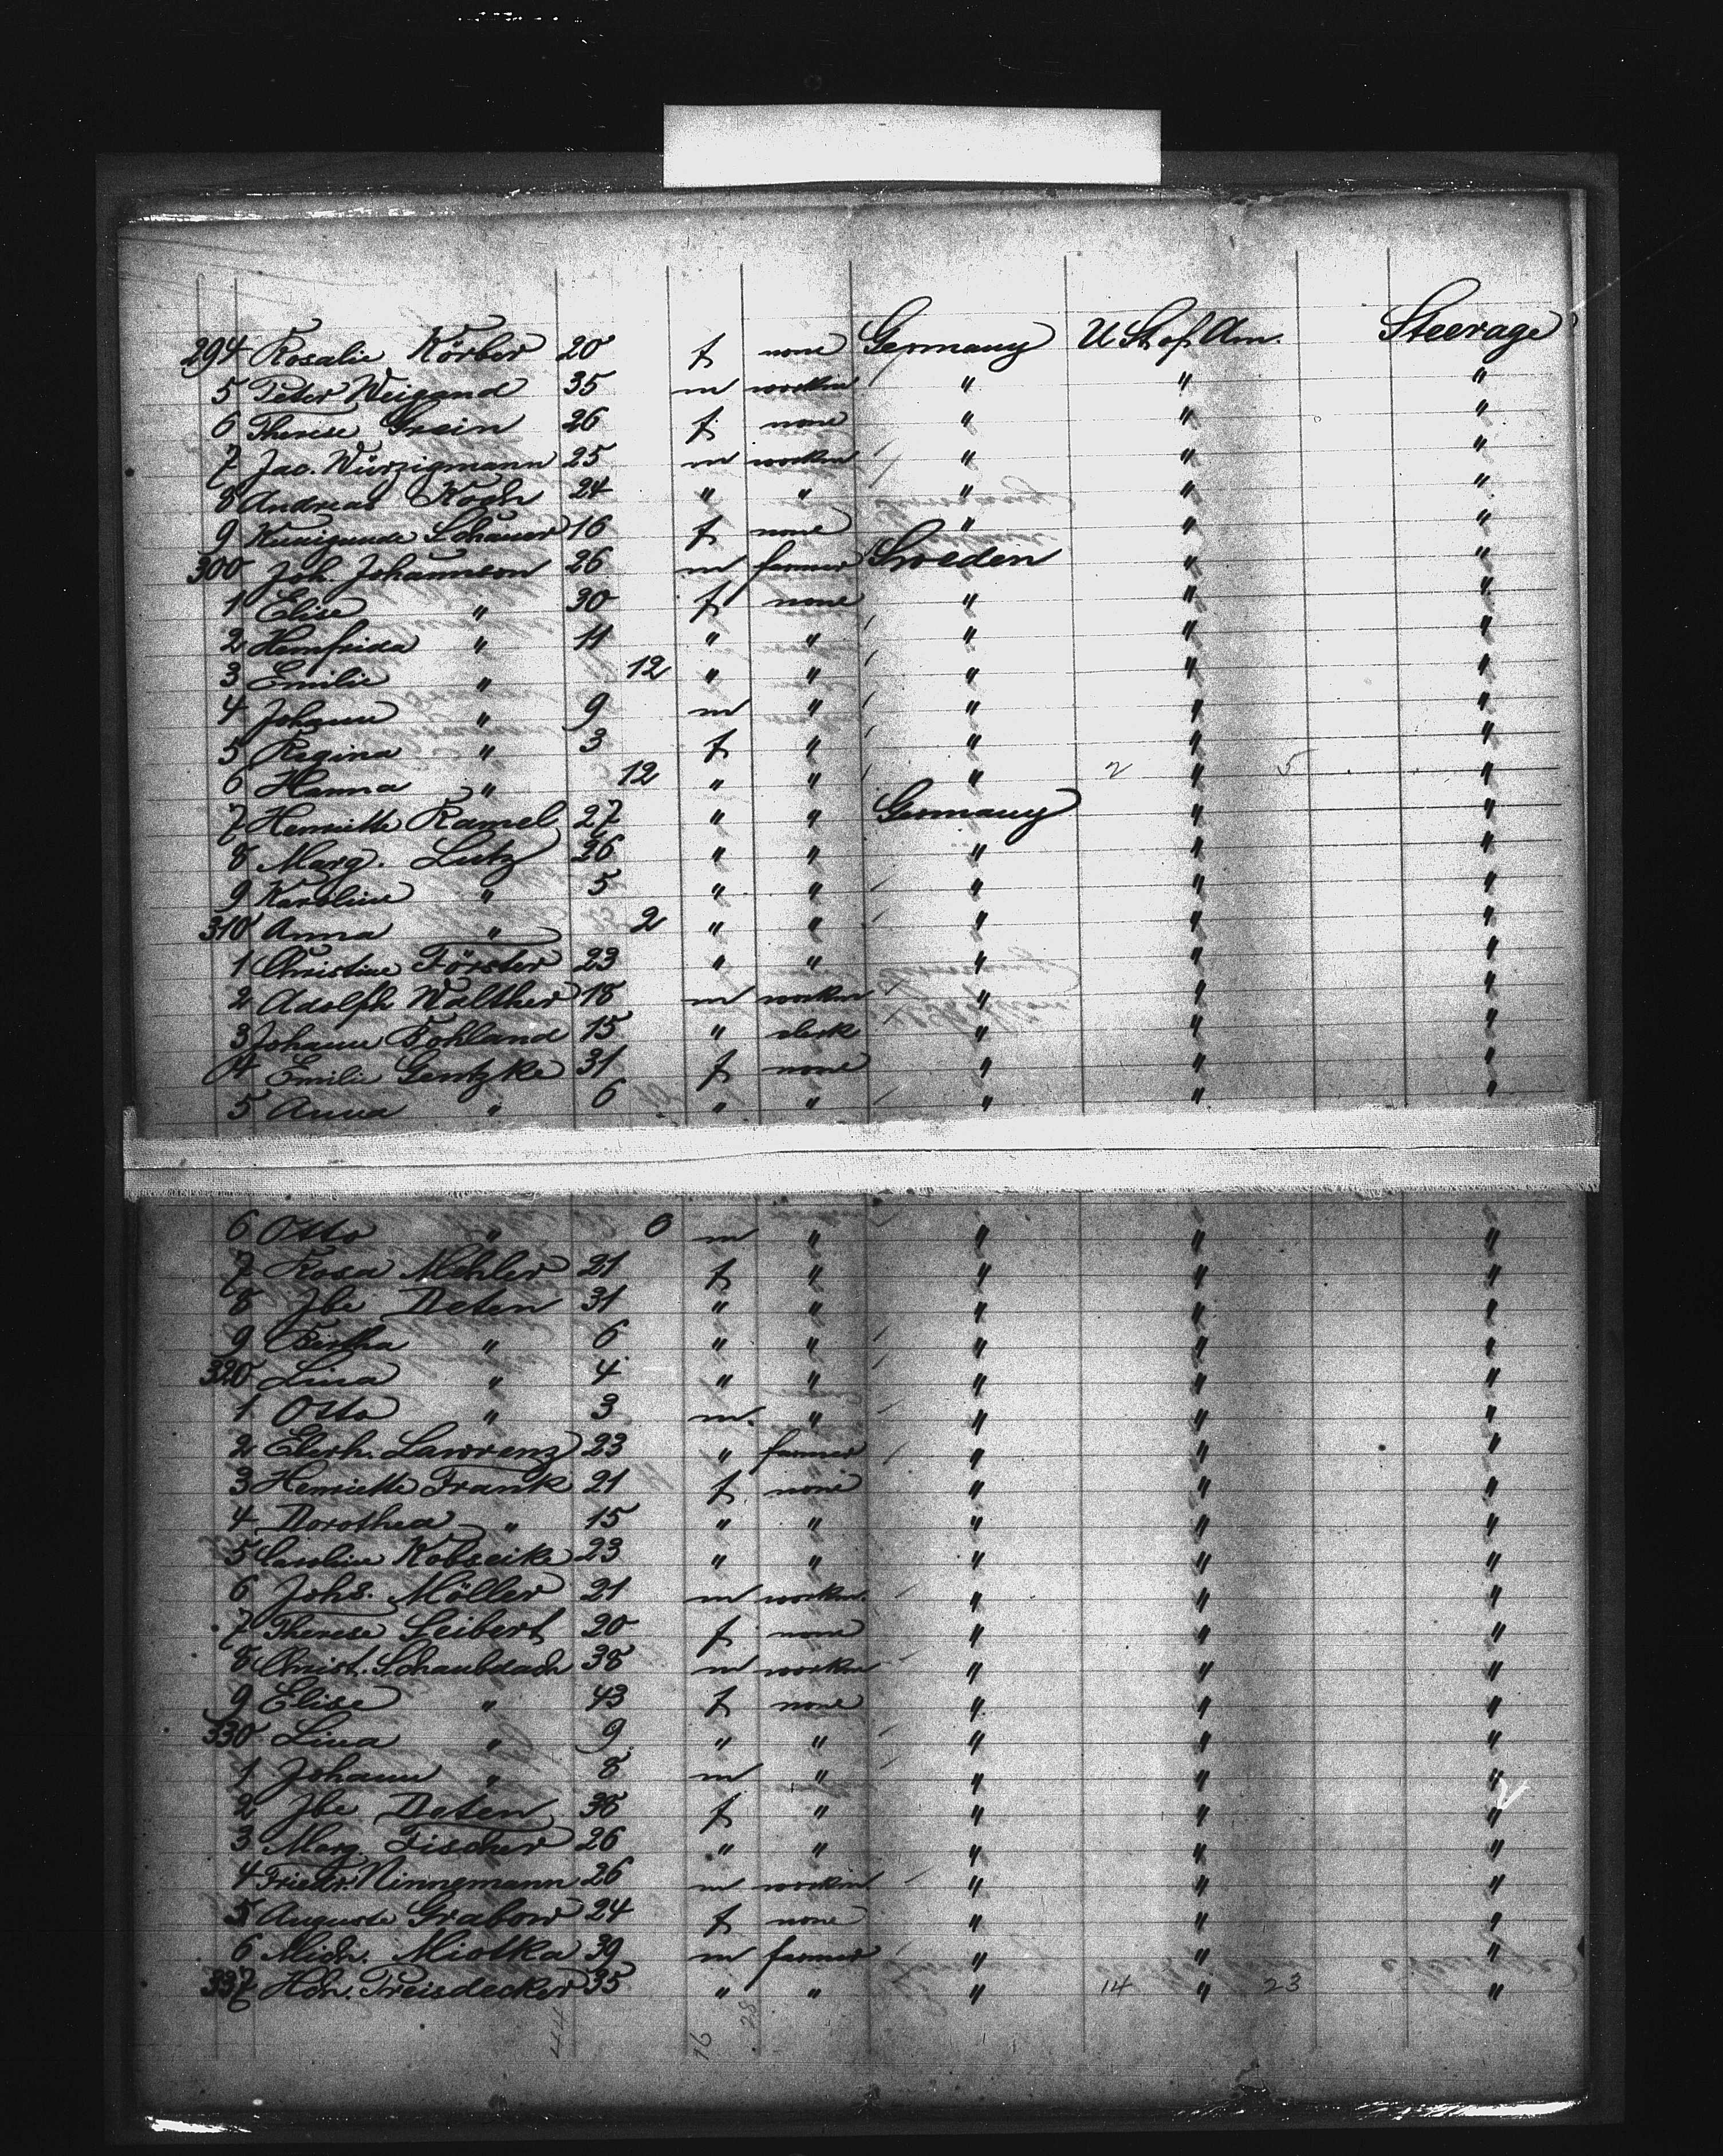 294 Rosalie Körber 20 f none Germany U St. of Am. Steerage
5 Peter Weigand 35 m workm " " "
6 Therese Grein 26 f none " " "
7 Jac. Würzigmann 25 m workm " " "
8 Andreas Koch 24 " " " " "
9 Kunigunde Schauer 16 f none " " "
300 Joh. Johannson 26 m farmer Sweden " "
1 Elise " 30 f none " " "
2 Hemfrida " 11 " " " " "
3 Emilie " 12 " " " " "
4 Johann " 9 m " " " "
5 Regina " 3 f " " " "
6 Hanna " 12 " " " 2 " 5 "
7 Henriette Ramel 27 " " Germany " "
8 Marg. Lutz 26 " " " " "
9 Karoline " 5 " " " " "
310 Anna " 2 " " " " "
1 Christine Förster 23 " " " " "
2 Adolph Walther 18 m workm " " "
3 Johann Fohland 15 " clerk " " "
4 Emilie Gentzke 31 f none " " "
5 Anna " 6 " " " " "
6 Otto " 0 m " " " "
7 Rosa Mehler 21 f " " " "
8 Jbe Deten 31 " " " " "
9 Bertha " 6 " " " " "
320 Lina " 4 " " " " "
1 Otto " 3 m. " " " "
2 Eberh. Lawrenz 23 " farmer " " "
3 Henriette Frank 21 f none " " "
4 Dorothea " 15 " " " " "
5 Caroline Kobseike 23 " " " " "
6 Johs. Möller 21 m workm. " " "
7 Therese Seibert 20 f none " " "
8 Christ. Schaubdach 38 m workm " " "
9 Elise " 43 f none " " "
330 Lina " 9 " " " " "
1 Johann " 8 m " " " "
2 Jbe Deten 38 f " " " "
3 Marg. Fischer 26 " " " " "
4 Friedr. Ninnemann 26 m workm " " "
5 Auguste Grabow 24 f none " " "
6 Mich. Miotka 39 m farmer " " "
337 Hch. Freisdecker 35 " " " 14 " 23 "
44 16 28